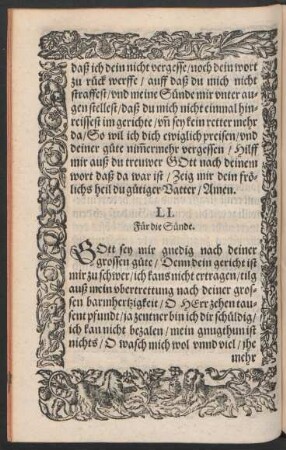 daß ich dein nicht vergesse/noch dein wort
zu rück werffe / auff daß du mich nicht
straffest/vnd meine Sünde mir vnter au-
gen stellest/daß du mich nicht einmal hin-
reissest im gerichte / vñ sey kein retter mehr
da/So wil ich dich ewiglich preisen/vnd
deiner güte nim̃ermehr vergessen / Hilff
mir auß du treuwer GOtt nach deinem
wort daß da war ist / Zeig mir dein frö-
lichs heil du gütiger Vatter/Amen.
LI.
Für die Sünde.
GOtt sey mir gnedig nach deiner
grossen güte / Denn dein gericht ist
mir zu schwer/ich kans nicht ertragen/tilg
auß mein vbertrettung nach deiner gros-
sen barmhertzigkeit / O HErr zehen tau-
sent pfundt/ja zentner bin ich dir schüldig/
ich kan nicht bezalen / mein gnugthun ist
nichts / O wasch mich wol vnnd viel / jhe
mehr